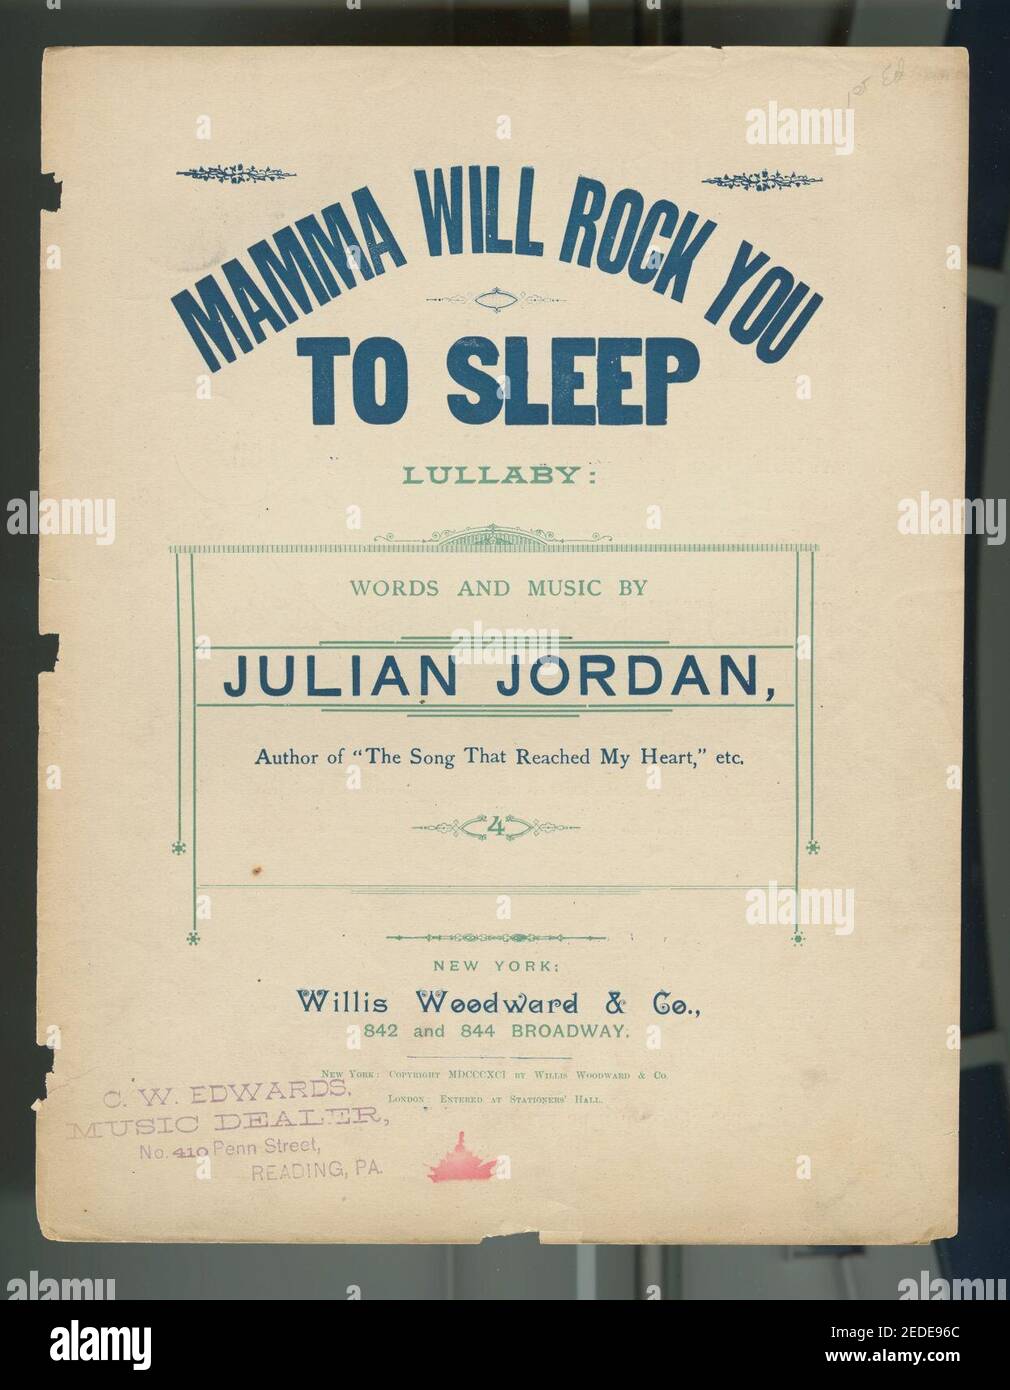 1st Ed
MAMMA WILL ROCK YOU
TO SLEEP
LULLABY:
WORDS AND MUSIC BY
JULIAN JORDAN,
Author of "The Song That Reached My Heart," etc.
4
NEW YORK:
Willis Woodward & Co.,
842 and 844 BROADWAY.
NEW YORK: COPYRIGHT MDCCCXCI BY WILLIS WOODWARD & CO.
LONDON: ENTERED AT STATIONERS' HALL.
C. W. EDWARDS,
MUSIC DEALER,
No. 410 Penn Street,
READING, PA.
alamy
alamy
alamy
alamy
alamy
a
a
a
a
alamy
Image ID: 2EDE96C
www.alamy.com